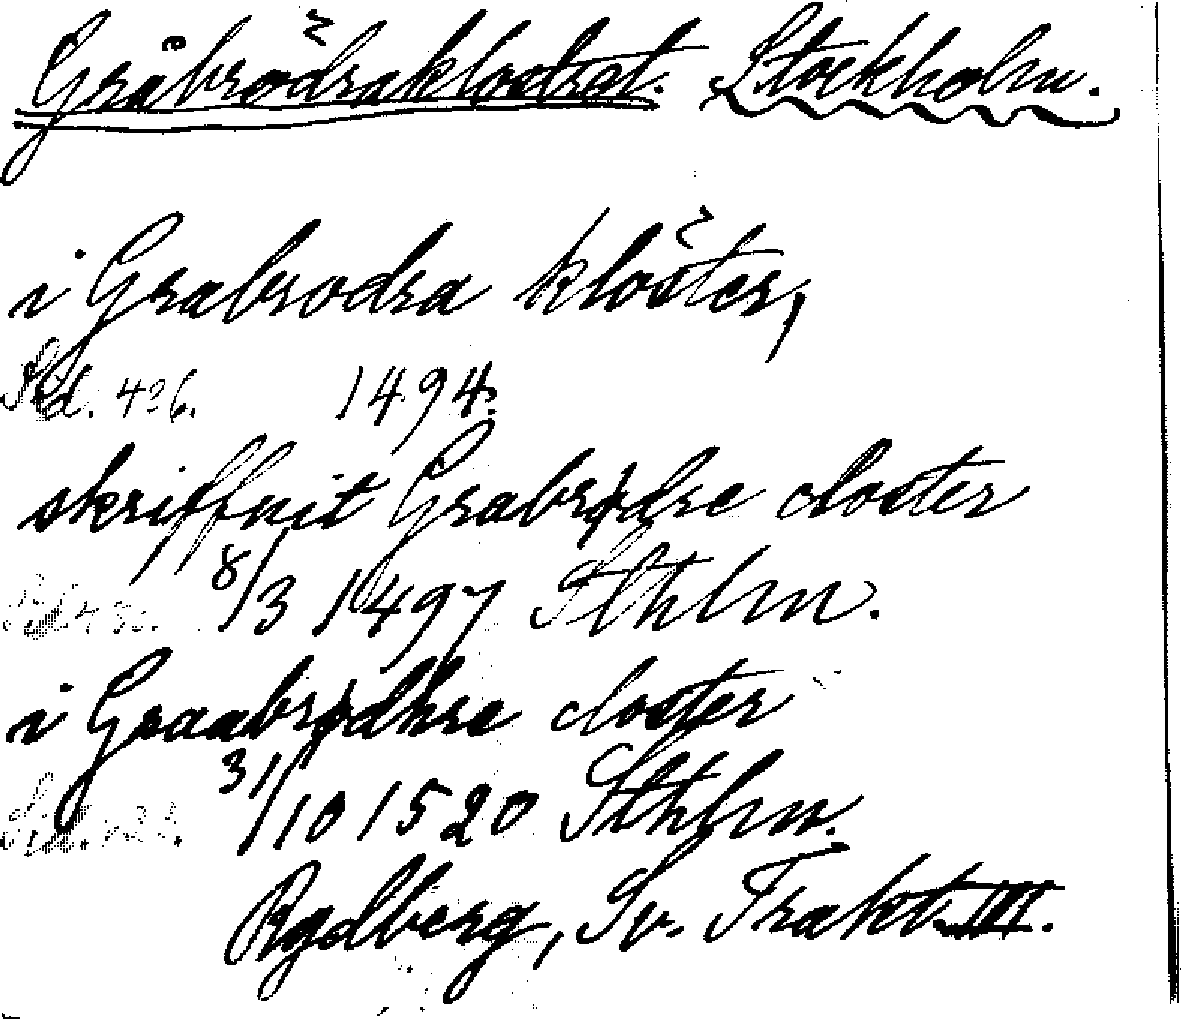 Gråbrödraklostret. Stockholm.
i Grabrodra kloster,
Sid. 426. 1494.
skriffuit Grabrødre closter
8/3 1497 Sthlm.
i Graabrødhre closter
31/10 1520 Sthlm.
Rydberg, Sv. Trakt. III.